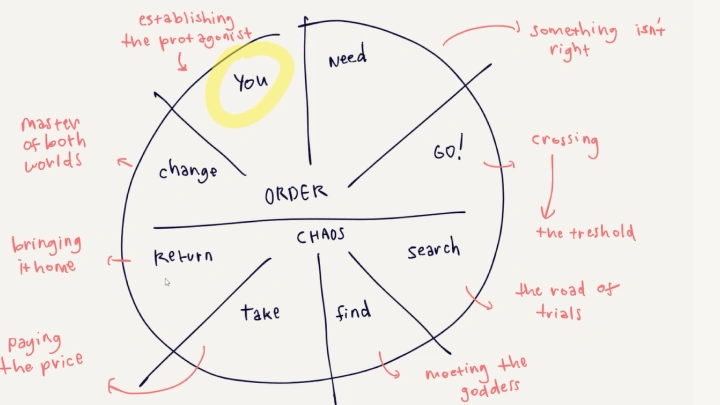 establishing
the protagonist
You
Need
something isn't
right
master
of both
worlds
change
GO!
crossing
the treshold
ORDER
CHAOS
bringing
it home
Return
search
the road of
trials
take
find
paying
the price
meeting the
goddess